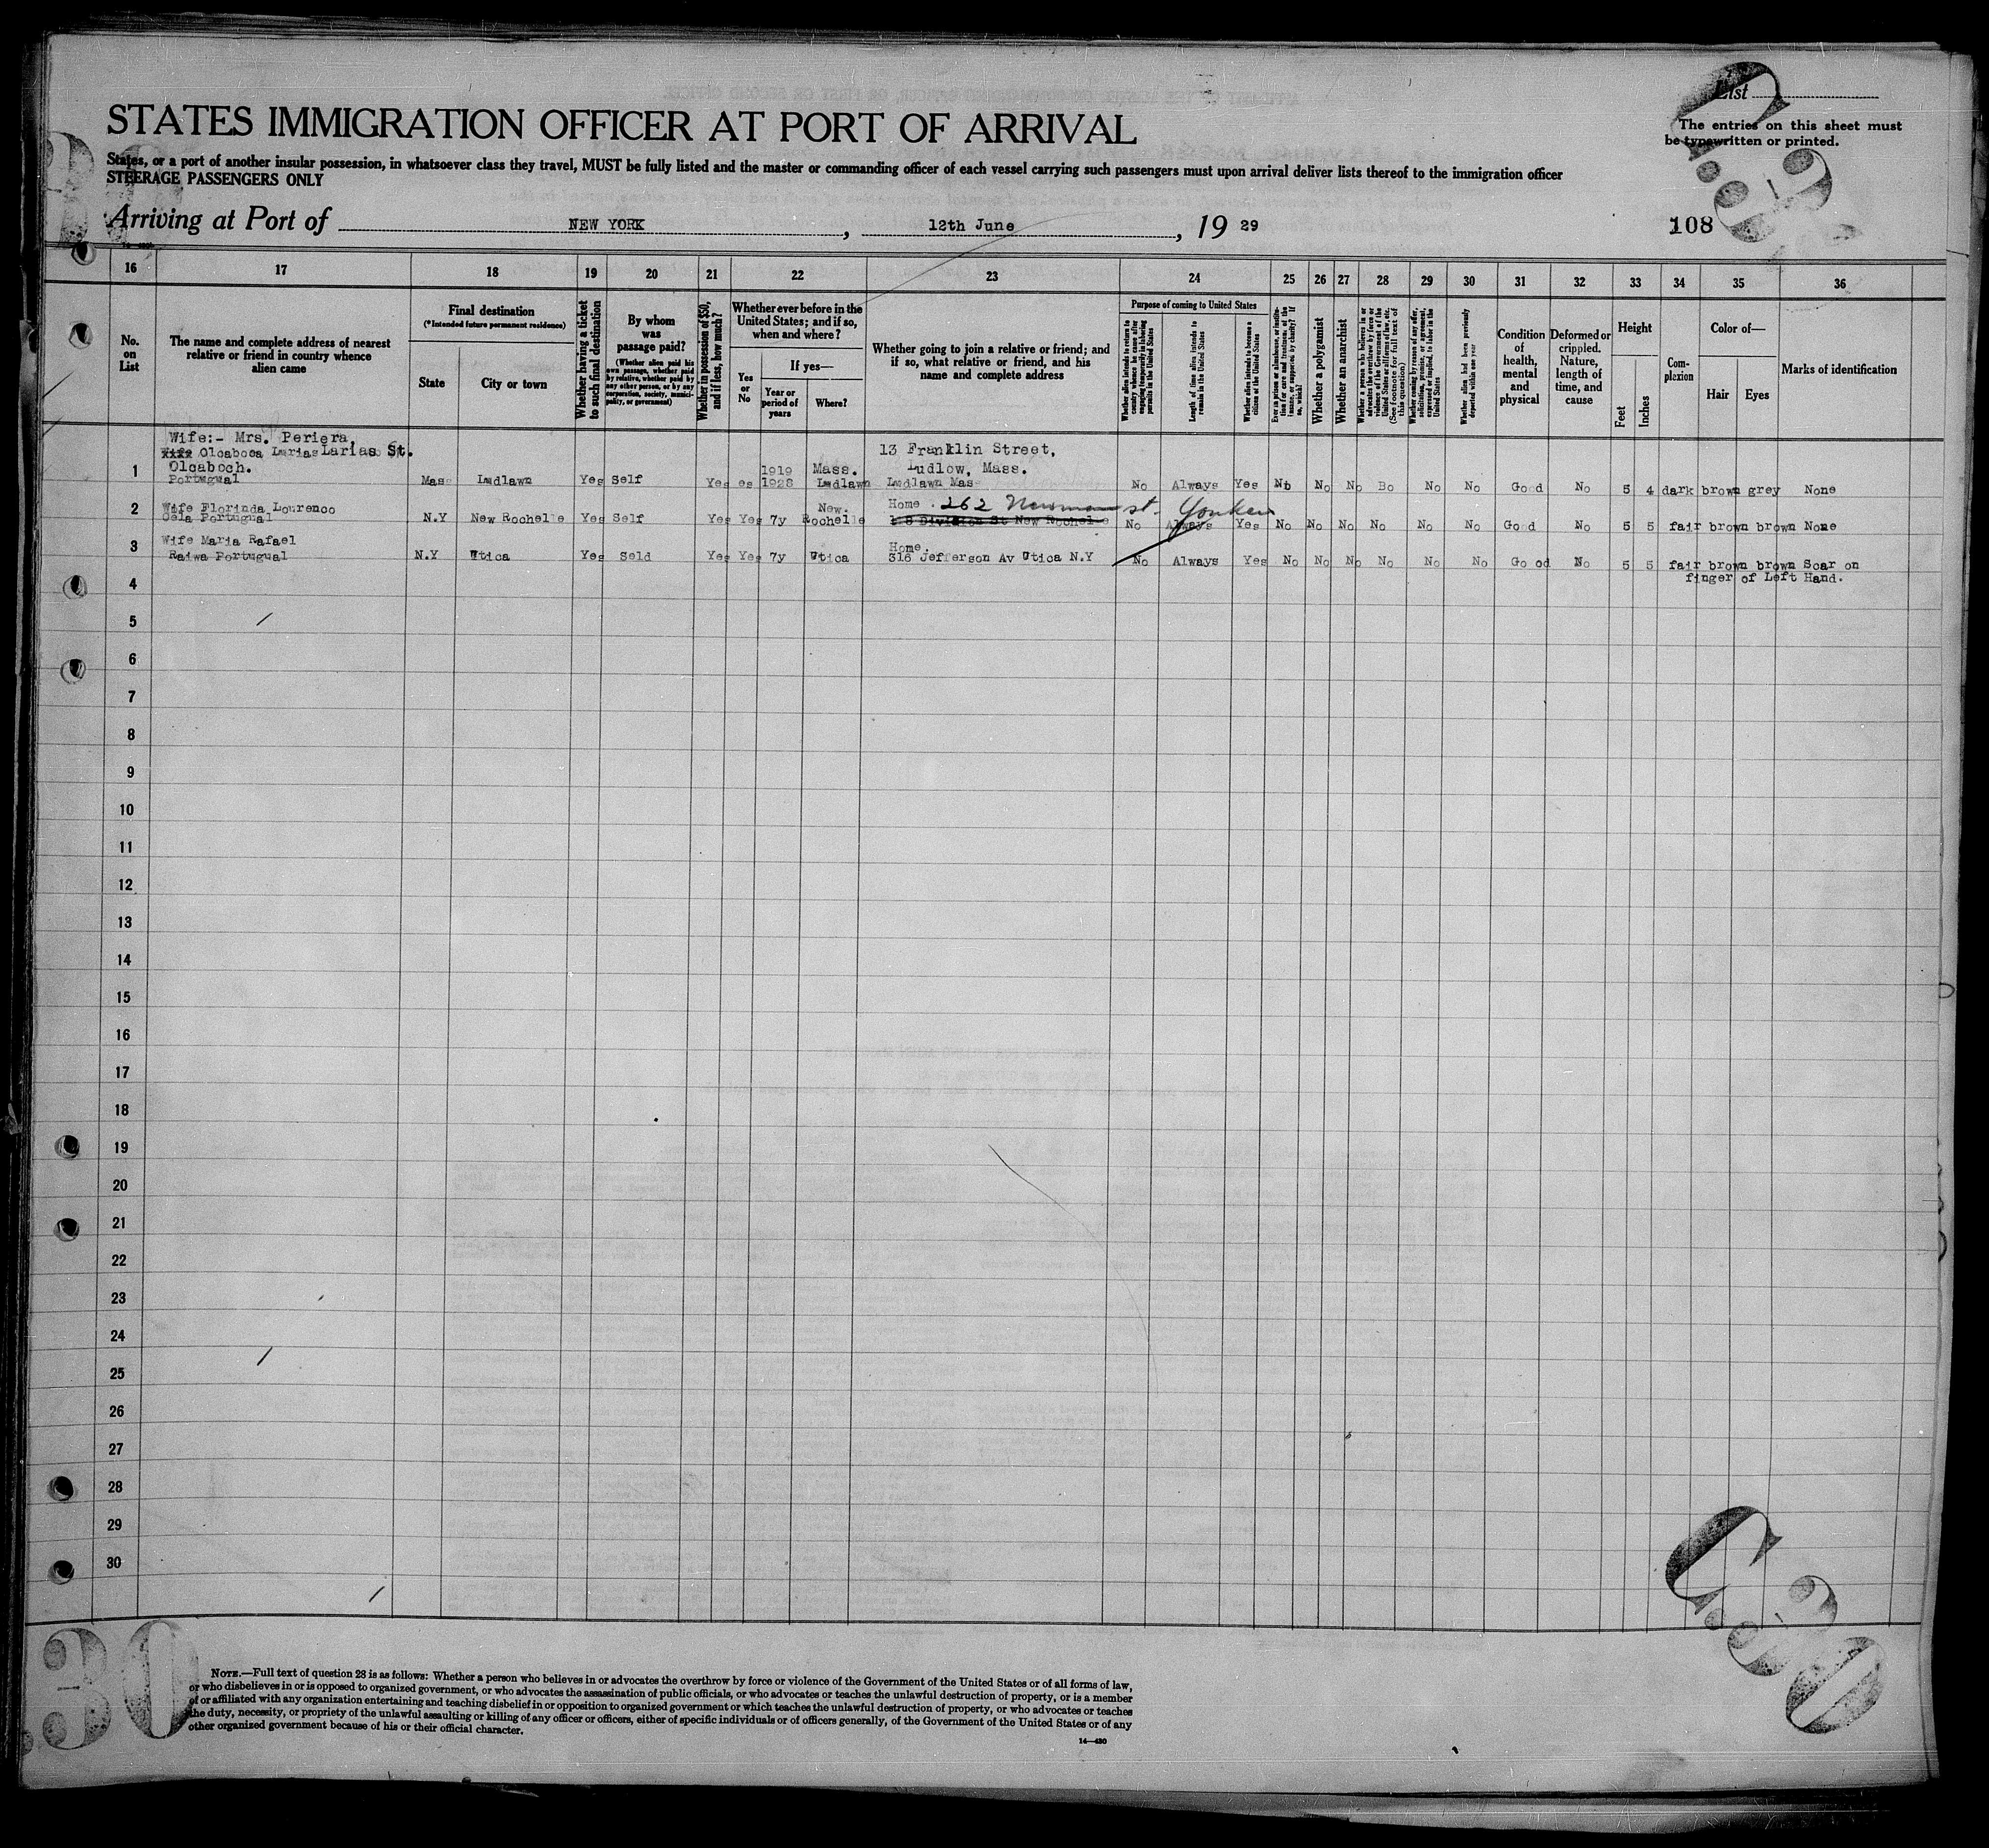 List
STATES IMMIGRATION OFFICER AT PORT OF ARRIVAL
The entries on this sheet must
be typewritten or printed.
States, or a port of another insular possession, in whatsoever class they travel, MUST be fully listed and the master or commanding officer of each vessel carrying such passengers must upon arrival deliver lists thereof to the immigration officer
STEERAGE PASSENGERS ONLY
Arriving at Port of NEW YORK, 12th June, 19 29
108
16 17 18 19 20 21 22 23 24 25 26 27 28 29 30 31 32 33 34 35 36
No. on List
The name and complete address of nearest relative or friend in country whence alien came
Final destination
(*Intended future permanent residence)
State
City or town
Whether having a ticket to such final destination
By whom was passage paid?
(Whether alien paid his own passage, whether paid by relative, whether paid by any other person, or by any corporation, society, municipality, or government)
Whether in possession of $50, and if less, how much?
Whether ever before in the United States; and if so, when and where?
Yes or No
If yes—
Year or period of years
Where?
Whether going to join a relative or friend; and if so, what relative or friend, and his name and complete address
Purpose of coming to United States
Whether alien intends to return to country whence he came after engaging temporarily in laboring pursuits in the United States
Length of time alien intends to remain in the United States
Whether alien intends to become a citizen of the United States
Ever in prison or almshouse, or institution for care and treatment of the insane, or supported by charity? If so, which?
Whether a polygamist
Whether an anarchist
Whether a person who believes in or advocates the overthrow by force or violence of the Government of the United States or all forms of law, etc. (See footnote for full text of this question)
Whether coming by reason of any offer, solicitation, promise, or agreement, expressed or implied, to labor in the United States
Whether alien had been previously deported within one year
Condition of health, mental and physical
Deformed or crippled. Nature, length of time, and cause
Height
Feet
Inches
Complexion
Color of—
Hair
Eyes
Marks of identification
Wife:- Mrs. Periera,
Olcaboca Larias Larias St.
Olcaboch.
1 Portugual Mas Ludlawn Yes Self Yes es 1919 1928 Mass. Ludlawn
13 Franklin Street,
Ludlow, Mass.
Ludlawn Mas No Always Yes No No No Bo No No Good No 5 4 dark brown grey None
2 Wife Florinda Lourenco
Cela Portugual N.Y New Rochelle Yes Self Yes Yes 7y New Rochelle
Home . 262 Newman st. Yonkers
New Rochelle No Always Yes No No No No No No Good No 5 5 fair brown brown None
3 Wife Maria Rafael
Raiwa Portugual N.Y Utica Yes Seld Yes Yes 7y Utica
Home.
316 Jefferson Av Utica N.Y No Always Yes No No No No No No Good No 5 5 fair brown brown Scar on
finger of Left Hand.
4
5
6
7
8
9
10
11
12
13
14
15
16
17
18
19
20
21
22
23
24
25
26
27
28
29
30
30
NOTE.—Full text of question 28 is as follows: Whether a person who believes in or advocates the overthrow by force or violence of the Government of the United States or of all forms of law,
or who disbelieves in or is opposed to organized government, or who advocates the assassination of public officials, or who advocates or teaches the unlawful destruction of property, or is a member
of or affiliated with any organization entertaining and teaching disbelief in or opposition to organized government or which teaches the unlawful destruction of property, or who advocates or teaches
the duty, necessity, or propriety of the unlawful assaulting or killing of any officer or officers, either of specific individuals or of officers generally, of the Government of the United States or of any
other organized government because of his or their official character.
14—430